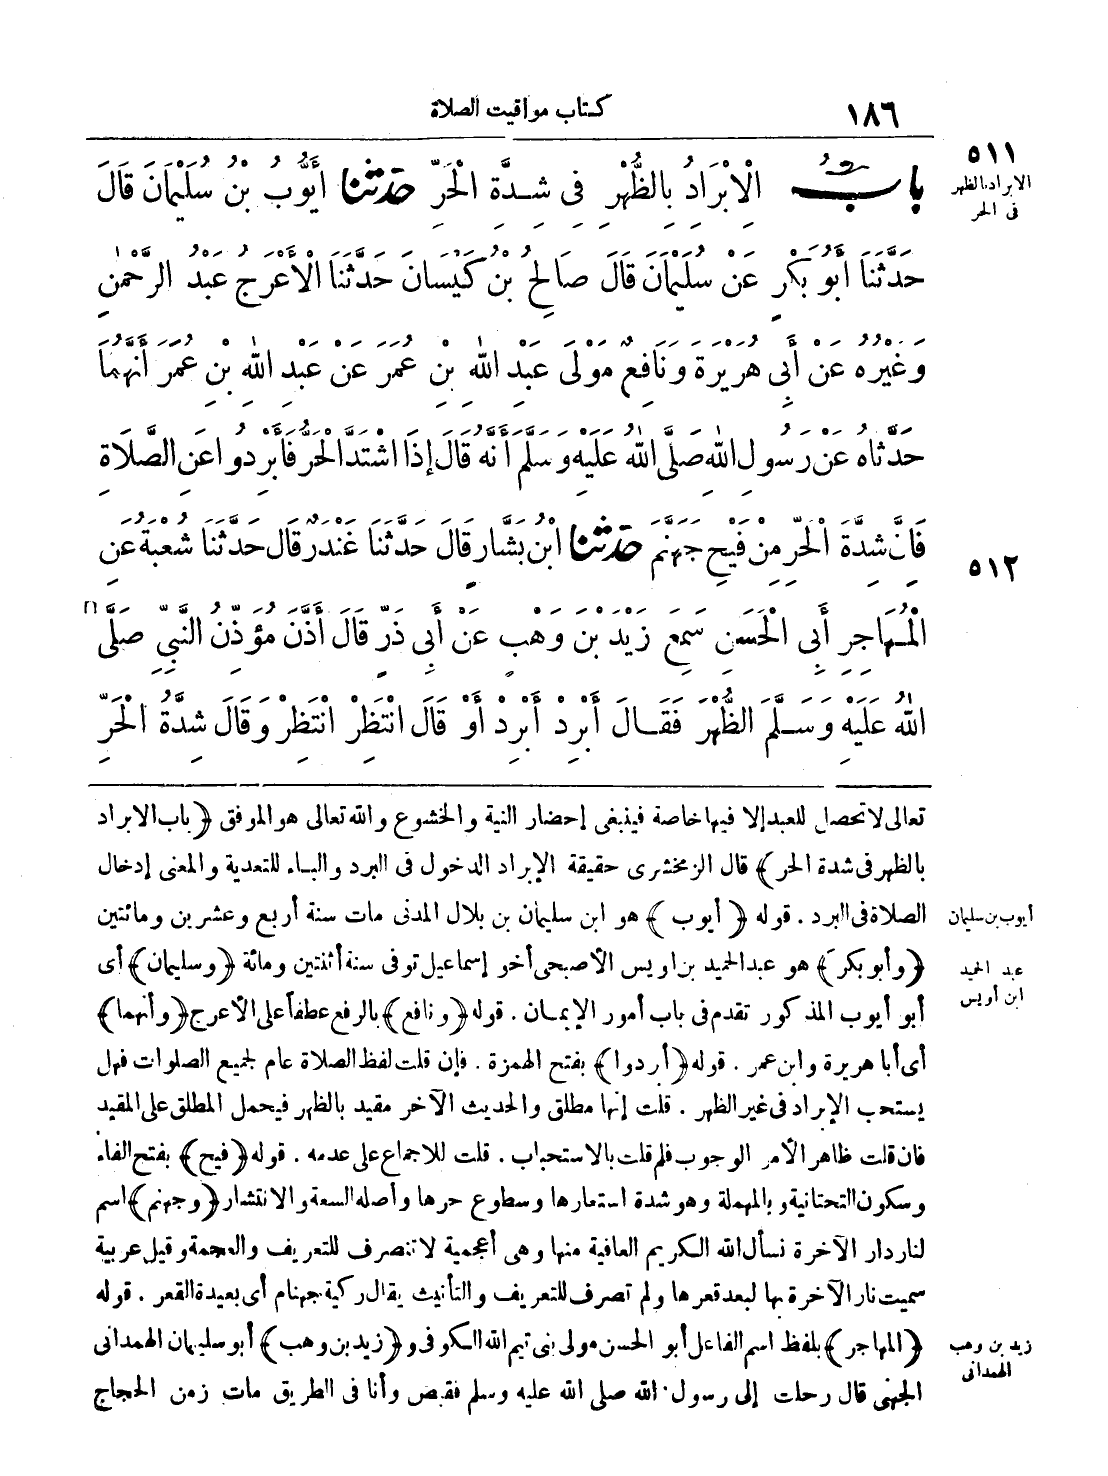 ١٨٦
كتاب مواقيت الصلاة
٥١١
الابراد بالظهر
فى الحر
بابُ الْإِبْرَادُ بِالظُّهْرِ فِى شِدَّةِ الْحَرِّ حَدَّثَنَا أَيُّوبُ بْنُ سُلَيْمَانَ قَالَ
حَدَّثَنَا أَبُو بَكْرٍ عَنْ سُلَيْمَانَ قَالَ صَالِحُ بْنُ كَيْسَانَ حَدَّثَنَا الْأَعْرَجُ عَبْدُ الرَّحْمٰنِ
وَغَيْرُهُ عَنْ أَبِى هُرَيْرَةَ وَنَافِعٌ مَوْلَى عَبْدِ اللهِ بْنِ عُمَرَ عَنْ عَبْدِ اللهِ بْنِ عُمَرَ أَنَّهُمَا
حَدَّثَاهُ عَنْ رَسُولِ اللهِ صَلَّى اللهُ عَلَيْهِ وَسَلَّمَ أَنَّهُ قَالَ إِذَا اشْتَدَّ الْحَرُّ فَأَبْرِدُوا عَنِ الصَّلَاةِ
فَإِنَّ شِدَّةَ الْحَرِّ مِنْ فَيْحِ جَهَنَّمَ حَدَّثَنَا ابْنُ بَشَّارٍ قَالَ حَدَّثَنَا غُنْدَرٌ قَالَ حَدَّثَنَا شُعْبَةُ عَنِ
٥١٢
الْمُهَاجِرِ أَبِى الْحَسَنِ سَمِعَ زَيْدَ بْنَ وَهْبٍ عَنْ أَبِى ذَرٍّ قَالَ أَذَّنَ مُؤَذِّنُ النَّبِىِّ صَلَّى
اللهُ عَلَيْهِ وَسَلَّمَ الظُّهْرَ فَقَالَ أَبْرِدْ أَبْرِدْ أَوْ قَالَ انْتَظِرْ انْتَظِرْ وَقَالَ شِدَّةُ الْحَرِّ
تعالى لا تحصل للعبد إلا فيها خاصة فينبغى إحضار النية والخشوع والله تعالى هو الموفق ﴿باب الابراد
بالظهر فى شدة الحر﴾ قال الزمخشرى حقيقة الإبراد الدخول فى البرد والباء للتعدية والمعنى إدخال
الصلاة فى البرد . قوله ﴿أيوب﴾ هو ابن سليمان بن بلال المدنى مات سنة أربع وعشرين ومائتين
أيوب بن سليمان
﴿وأبو بكر﴾ هو عبد الحميد بن اويس الأصبحى أخو إسماعيل توفى سنة أثنتين ومائة ﴿وسليمان﴾ أى
عبد الحميد
ابن أويس
أبو أيوب المذكور تقدم فى باب أمور الإيمان . قوله ﴿ونافع﴾ بالرفع عطفاً على الأعرج ﴿وأنهما﴾
أى أبا هريرة وابن عمر . قوله ﴿أردوا﴾ بفتح الهمزة . فإن قلت لفظ الصلاة عام لجميع الصلوات فهل
يستحب الإبراد فى غير الظهر . قلت إنها مطلق والحديث الآخر مقيد بالظهر فيحمل المطلق على المقيد
فان قلت ظاهر الأمر الوجوب فلم قلت بالاستحباب . قلت للاجماع على عدمه . قوله ﴿فيح﴾ بفتح الفاء
وسكون التحتانية وبالمهملة وهو شدة استعارها وسطوع حرها وأصله السعة والانتشار ﴿وجهنم﴾ اسم
لنار دار الآخرة نسأل الله الكريم العافية منها وهى أعجمية لا تنصرف للتعريف والعجمة وقيل عربية
سميت نار الآخرة بها لبعد قعرها ولم تصرف للتعريف والتأنيث يقال ركية جهنام أى بعيدة القعر . قوله
﴿المهاجر﴾ بلفظ اسم الفاعل أبو الحسن مولى بنى تيم الله الكوفى و ﴿زيد بن وهب﴾ أبو سليمان الهمدانى
زيد بن وهب
الهمدانى
الجهنى قال رحلت إلى رسول الله صلى الله عليه وسلم فقبض وأنا فى الطريق مات زمن الحجاج